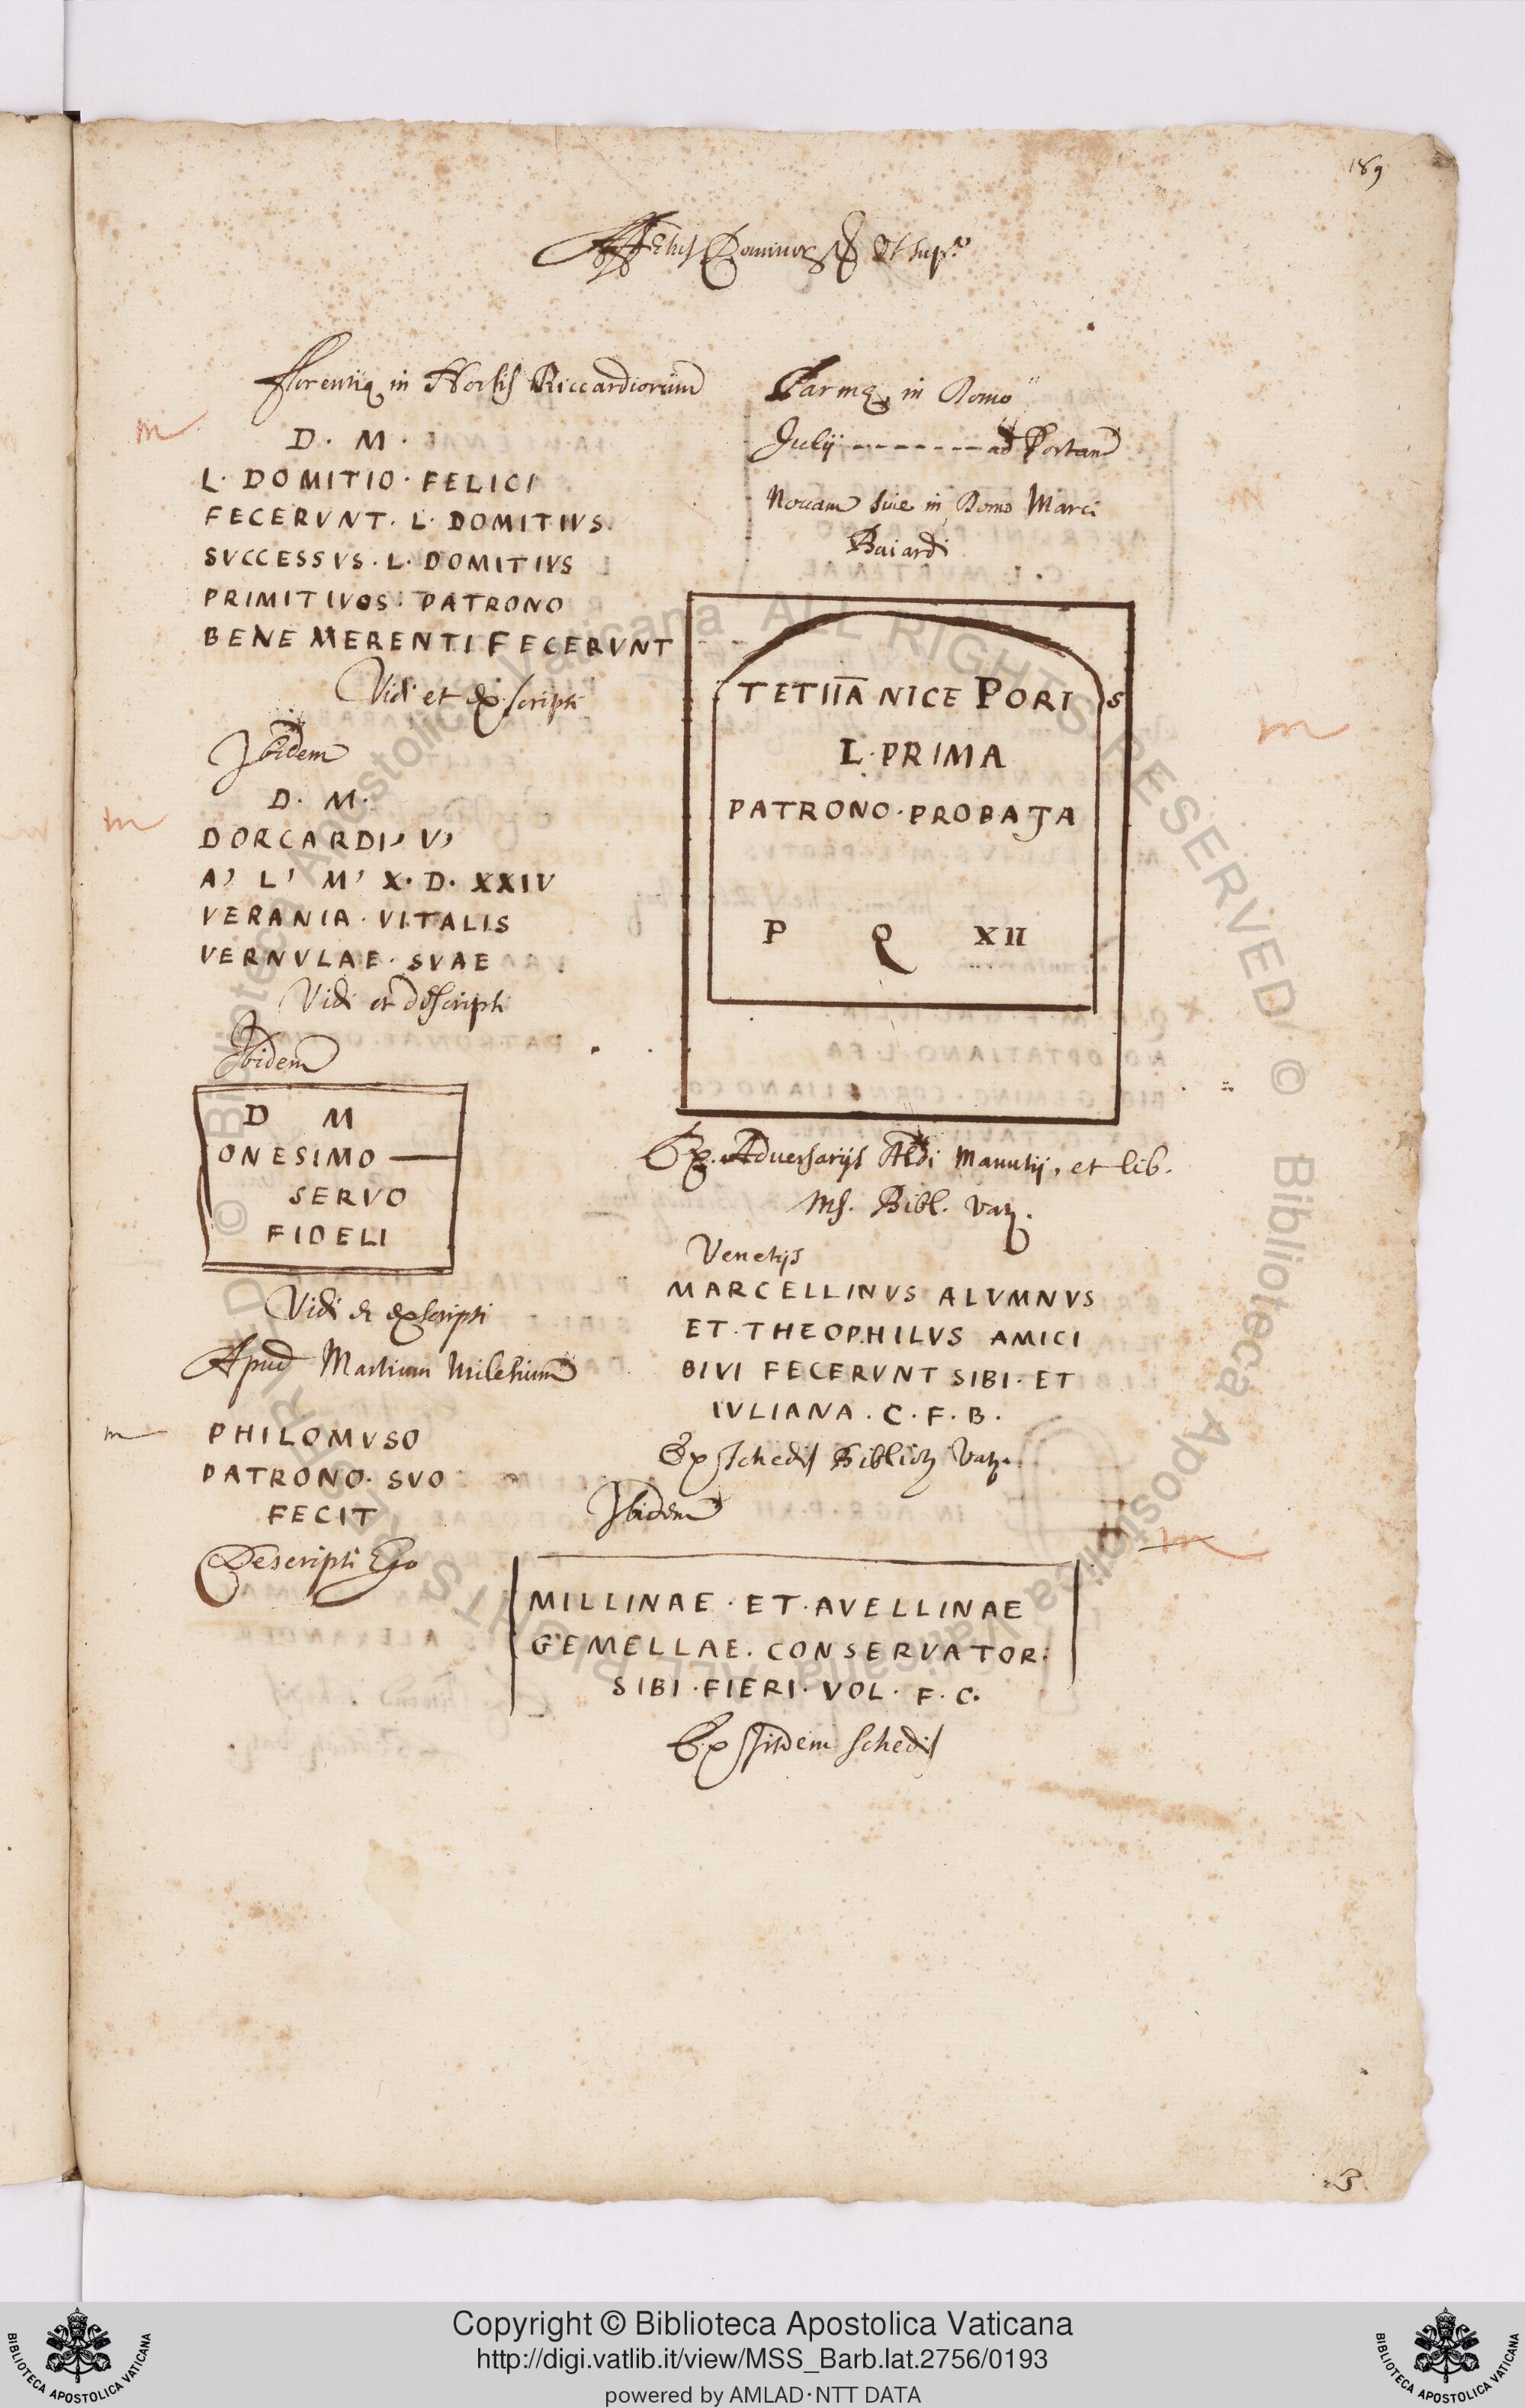 189
Affectus Dominor. et sup.
Florentiæ in Hortis Riccardiorum
D. M.
L. DOMITIO. FELICI
FECERVNT. L. DOMITIVS.
SVCCESSVS. L. DOMITIVS
PRIMITIVOS. PATRONO
BENE MERENTI FECERVNT
Vidi et exscripsi
Ibidem
D. M.
DORCARDI, V,
A, L, M, X. D. XXIV
VERANIA. VITALIS
VERNVLAE. SVAE
Vidi et descripsi
Ibidem
D M
ONESIMO
SERVO
FIDELI
Vidi et exscripsi
Apud Martium Miletium
PHILOMVSO
PATRONO. SVO
FECIT
Descripsi Ego
Parmæ in Domo
Julij -------- ad Portam
Nouam siue in Domo Marci
Baiardi
TETIIA NICE PORIS
L. PRIMA
PATRONO. PROBATA
P Q XII
Ex Aduersarijs Aldi Manutij, et lib.
Ms. Bibl. Vat.
Venetijs
MARCELLINVS ALVMNVS
ET. THEOPHILVS AMICI
BIVI FECERVNT SIBI. ET
IVLIANA. C. F. B.
Ex schedis Biblioth. Vat.
Ibidem
MILLINAE. ET. AVELLINAE
GEMELLAE. CONSERVATOR.
SIBI. FIERI. VOL. F. C.
Ex ijsdem schedis
© Biblioteca Apostolica Vaticana ALL RIGHTS RESERVED
Copyright © Biblioteca Apostolica Vaticana
http://digi.vatlib.it/view/MSS_Barb.lat.2756/0193
powered by AMLAD·NTT DATA
BIBLIOTECA APOSTOLICA VATICANA
BIBLIOTECA APOSTOLICA VATICANA